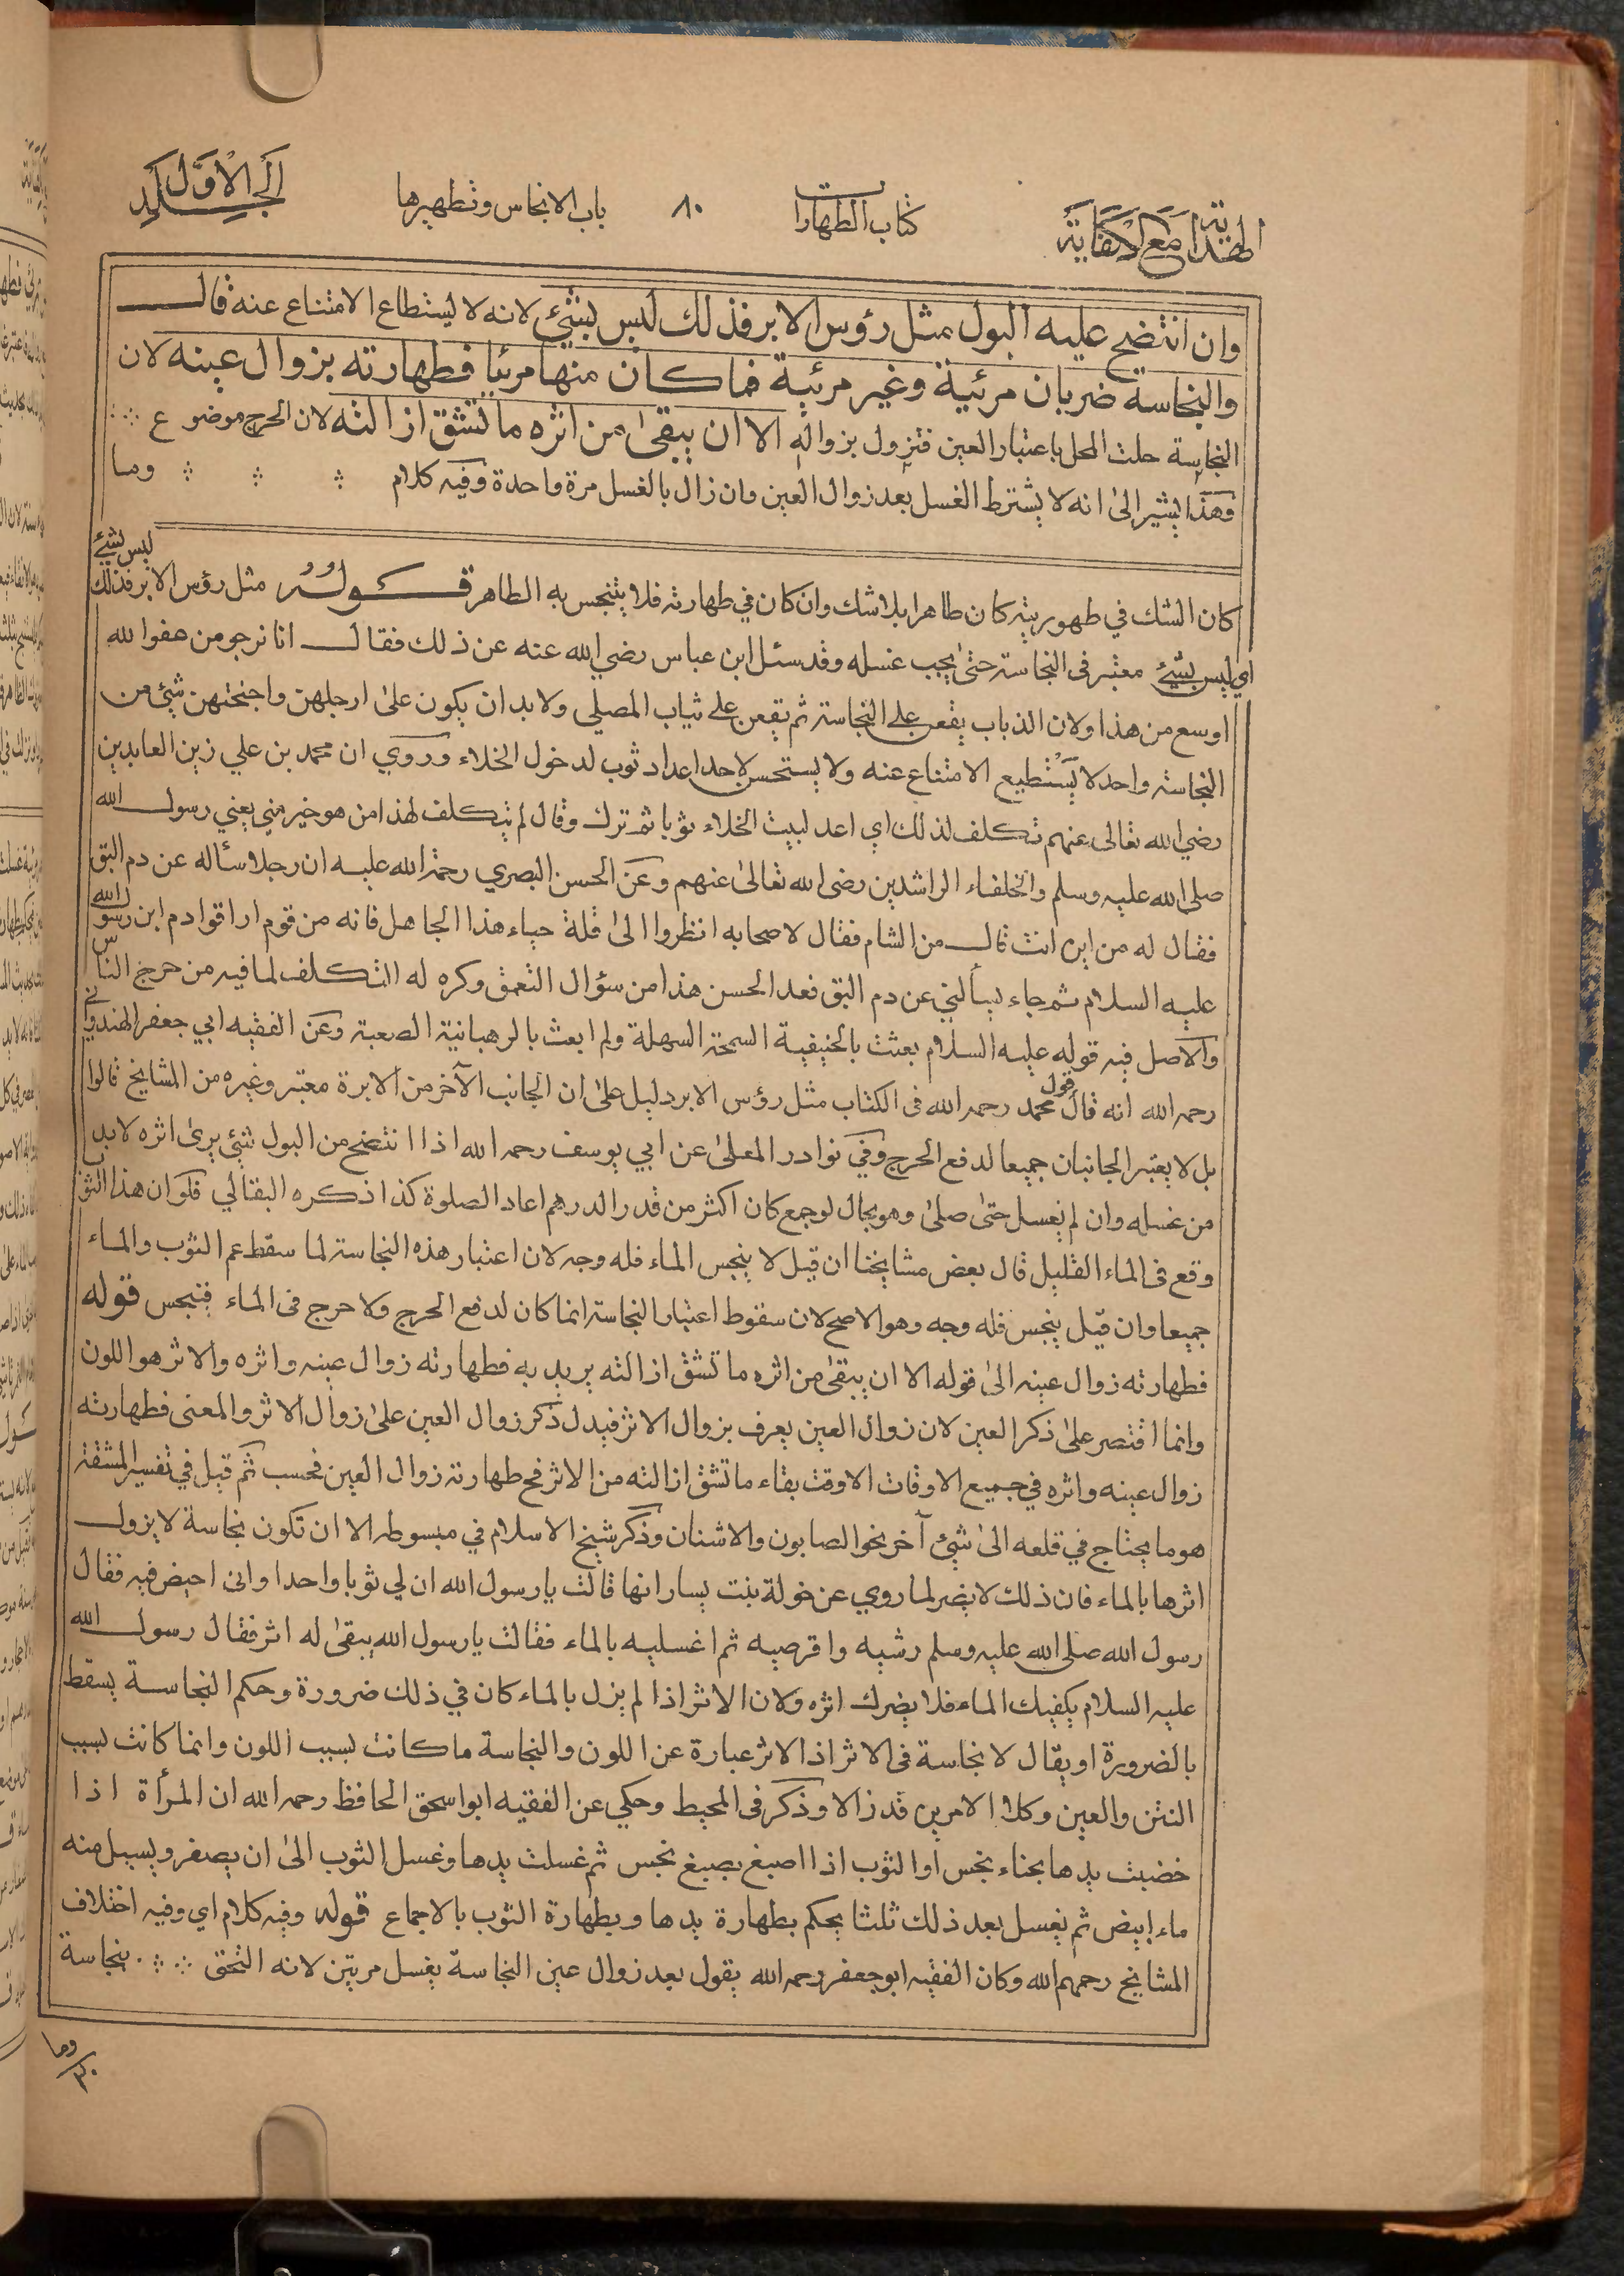 الهداية مع الكفاية
كتاب الطهارات
٨٠
باب الانجاس وتطهيرها
الجلد الاول
وان انتضح عليه البول مثل رؤس الابر فذلك ليس بشئ لانه لا يستطاع الامتناع عنه قال
والنجاسة ضربان مرئية وغير مرئية فما كان منها مرئيا فطهارته بزوال عينه لان
النجاسة حلت المحل باعتبار العين فتزول بزواله الا ان يبقى من اثره ما تشق ازالته لان الحرج موضوع
وهذا يشير الى انه لا يشترط الغسل بعد زوال العين وان زال بالغسل مرة واحدة وفيه كلام وما
كان الشك في طهوريته كان طاهرا بلا شك وان كان في طهارته فلا يتنجس به الطاهر قوله مثل رؤس الابر فذلك ليس بشئ
اي ليس بشئ معتبر في النجاسة حتى يجب غسله وقد سئل ابن عباس رضي الله عنه عن ذلك فقال انا نرجو من عفو الله
اوسع من هذا ولان الذباب يقعن على النجاسة ثم يقعن على ثياب المصلي ولا بد ان يكون على ارجلهن واجنحتهن شئ من
النجاسة واحد لا يستطيع الامتناع عنه ولا يستحسن لاحد اعداد ثوب لدخول الخلاء وروي ان محمد بن علي زين العابدين
رضي الله تعالى عنهم تكلف لذلك اي اعد لبيت الخلاء ثوبا ثم ترك وقال لم يتكلف لهذا من هو خير مني يعني رسول الله
صلى الله عليه وسلم والخلفاء الراشدين رضي الله تعالى عنهم وعن الحسن البصري رحمة الله عليه ان رجلا سأله عن دم البق
فقال له من اين انت قال من الشام فقال لاصحابه انظروا الى قلة حياء هذا الجاهل فانه من قوم اراقوا دم ابن رسول الله
عليه السلام ثم جاء يسألني عن دم البق فعد الحسن هذا من سؤال التعمق وكره له التكلف لما فيه من حرج الناس
والاصل فيه قوله عليه السلام بعثت بالحنيفية السمحة السهلة ولم ابعث بالرهبانية الصعبة وعن الفقيه ابي جعفر الهندواني
رحمه الله انه قال قول محمد رحمه الله في الكتاب مثل رؤس الابر دليل على ان الجانب الآخر من الابرة معتبر وغيره من المشايخ قالوا
بل لا يعتبر الجانبان جميعا لدفع الحرج وفي نوادر المعلى عن ابي يوسف رحمه الله اذا انتضح من البول شئ يرى اثره لا بد
من غسله وان لم يغسل حتى صلى وهو بحال لو جمع كان اكثر من قدر الدرهم اعاد الصلوة كذا ذكره البقالي فلو ان هذا الثوب
وقع في الماء القليل قال بعض مشايخنا ان قيل لا ينجس الماء فله وجه لان اعتبار هذه النجاسة لما سقط عم الثوب والماء
جميعا وان قيل ينجس فله وجه وهو الاصح لان سقوط اعتبار النجاسة انما كان لدفع الحرج ولا حرج في الماء فتنجس قوله
فطهارته زوال عينه الى قوله الا ان يبقى من اثره ما تشق ازالته يريد به فطهارته زوال عينه واثره والاثر هو اللون
وانما اقتصر على ذكر العين لان زوال العين يعرف بزوال الاثر فيدل ذكر زوال العين على زوال الاثر والمعنى فطهارته
زوال عينه واثره في جميع الاوقات الا وقت بقاء ما تشق ازالته من الاثر فح طهارته زوال العين فحسب ثم قيل في تفسير المشقة
هو ما يحتاج في قلعه الى شئ آخر نحو الصابون والاشنان وذكر شيخ الاسلام في مبسوطه الا ان تكون نجاسة لا يزول
اثرها بالماء فان ذلك لا يضر لما روي عن خولة بنت يسار انها قالت يا رسول الله ان لي ثوبا واحدا واني احيض فيه فقال
رسول الله صلى الله عليه وسلم رشيه واقرصيه ثم اغسليه بالماء فقالت يا رسول الله يبقى له اثر فقال رسول الله
عليه السلام يكفيك الماء فلا يضرك اثره ولان الاثر اذا لم يزل بالماء كان في ذلك ضرورة وحكم النجاسة يسقط
بالضرورة او يقال لا نجاسة في الاثر اذ الاثر عبارة عن اللون والنجاسة ما كانت بسبب اللون وانما كانت بسبب
النتن والعين وكلا الامرين قد زالا وذكر في المحيط وحكي عن الفقيه ابو اسحق الحافظ رحمه الله ان المرأة اذا
خضبت يدها بحناء نجس او الثوب اذا اصبغ بصبغ نجس ثم غسلت يدها وغسل الثوب الى ان يصفر ويسيل منه
ماء ابيض ثم يغسل بعد ذلك ثلثا يحكم بطهارة يدها وبطهارة الثوب بالاجماع قوله وفيه كلام اي وفيه اختلاف
المشايخ رحمهم الله وكان الفقيه ابو جعفر رحمه الله يقول بعد زوال عين النجاسة يغسل مرتين لانه التحق بنجاسة
وما